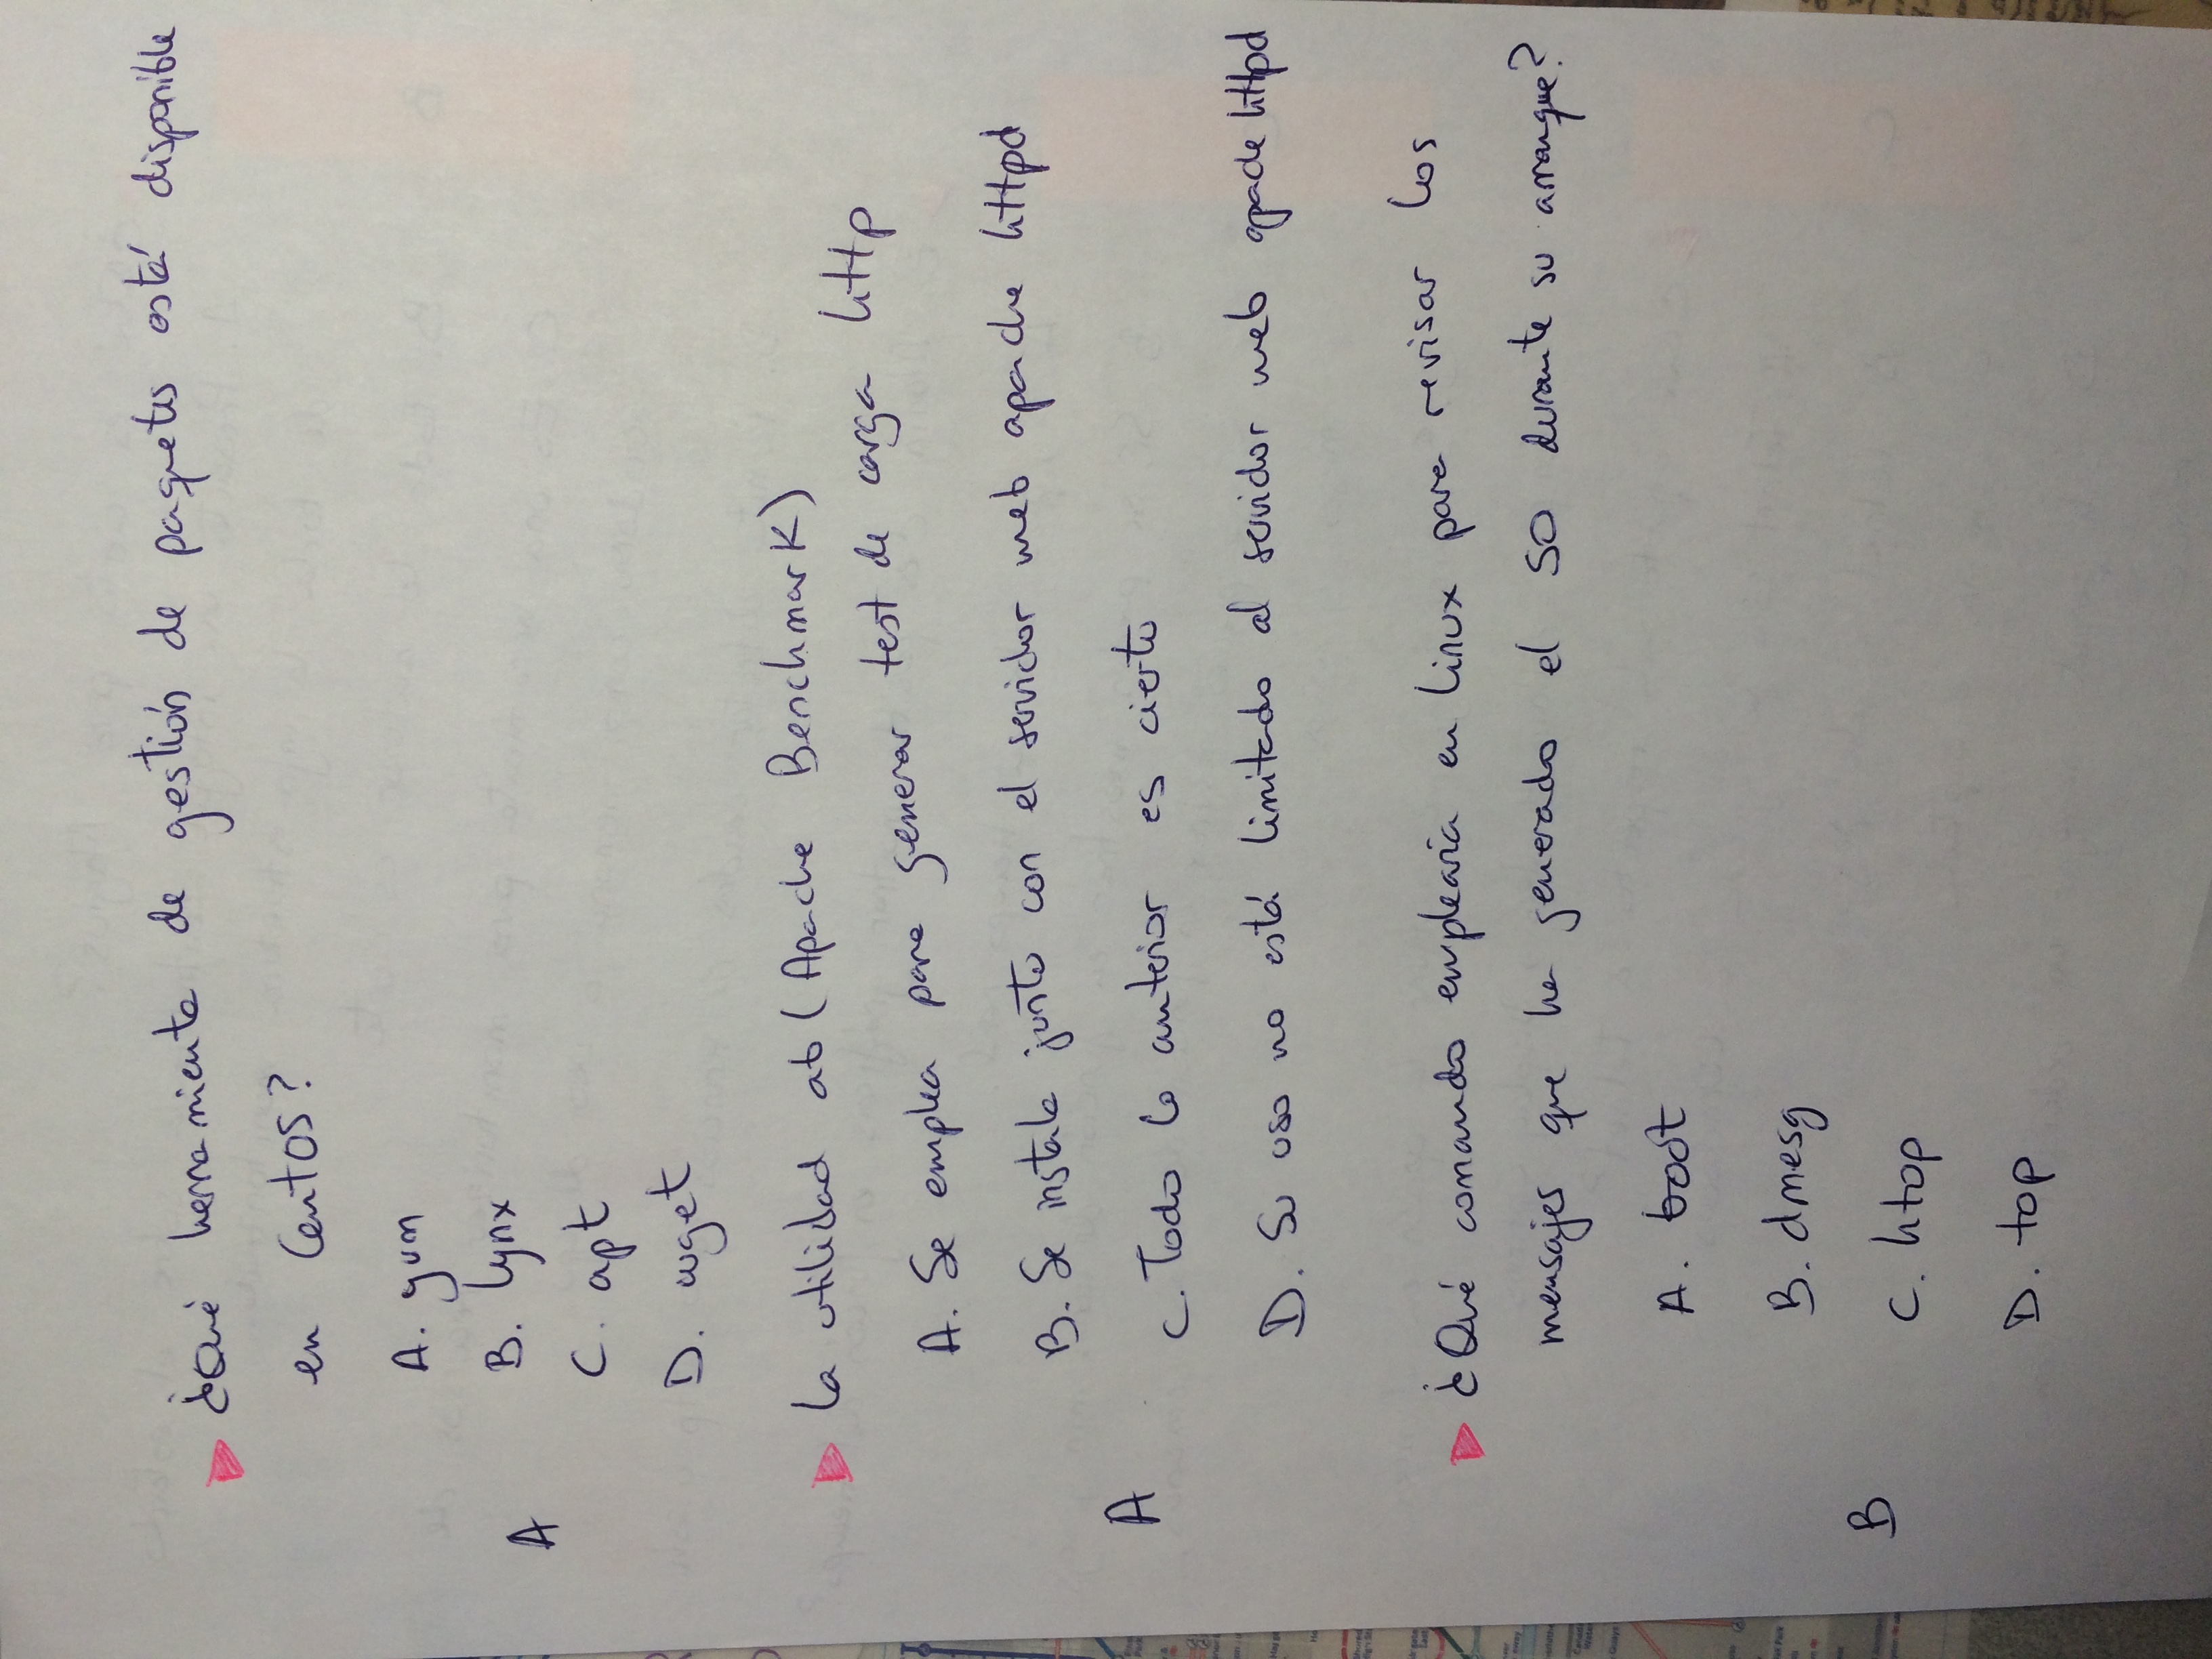 ¿Qué herramienta de gestión de paquetes está disponible
en CentOS?
A. yum
B. lynx
A
C. apt
D. wget
La utilidad ab (Apache Benchmark)
A. Se emplea para generar test de carga http
B. Se instala junto con el servidor web apache httpd
A
C. Todo lo anterior es cierto
D. Su uso no está limitado al servidor web apache httpd
¿Qué comando emplearía en Linux para revisar los
mensajes que ha generado el SO durante su arranque?
A. boot
B. dmesg
B
C. htop
D. top